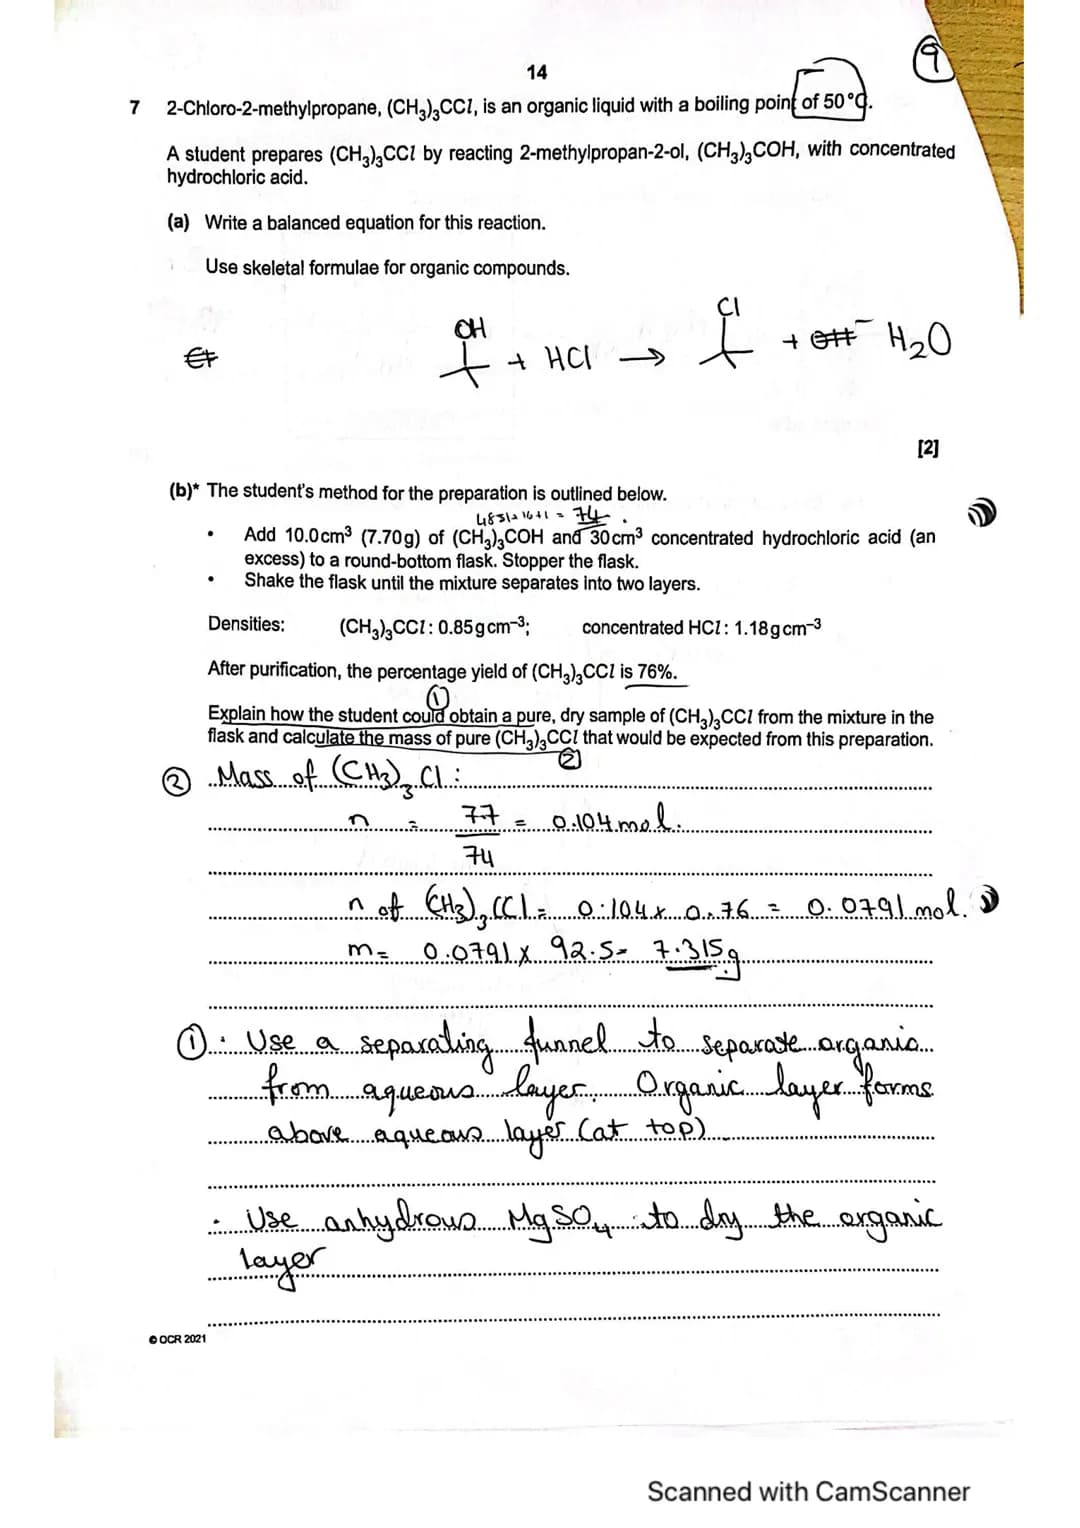 9
14
7 2-Chloro-2-methylpropane, (CH₃)₃CCl, is an organic liquid with a boiling point of 50 °C.
A student prepares (CH₃)₃CCl by reacting 2-methylpropan-2-ol, (CH₃)₃COH, with concentrated
hydrochloric acid.
(a) Write a balanced equation for this reaction.
Use skeletal formulae for organic compounds.
OH + HCl → Cl + H₂O
[2]
(b)* The student's method for the preparation is outlined below.
= 74
• Add 10.0 cm³ (7.70 g) of (CH₃)₃COH and 30 cm³ concentrated hydrochloric acid (an
excess) to a round-bottom flask. Stopper the flask.
• Shake the flask until the mixture separates into two layers.
Densities: (CH₃)₃CCl: 0.85 g cm⁻³; concentrated HCl: 1.18 g cm⁻³
After purification, the percentage yield of (CH₃)₃CCl is 76%.
①
Explain how the student could obtain a pure, dry sample of (CH₃)₃CCl from the mixture in the
flask and calculate the mass of pure (CH₃)₃CCl that would be expected from this preparation.
②
② Mass of (CH₃)₃Cl :
n = 7.7 / 74 = 0.104 mol.
n of (CH₃)₃CCl = 0.104 x 0.76 = 0.0791 mol.
m = 0.0791 x 92.5 = 7.315g
① • Use a separating funnel to separate organic
from aqueous layer. Organic layer forms
above aqueous layer (at top)
• Use anhydrous MgSO₄ to dry the organic
layer
© OCR 2021
Scanned with CamScanner